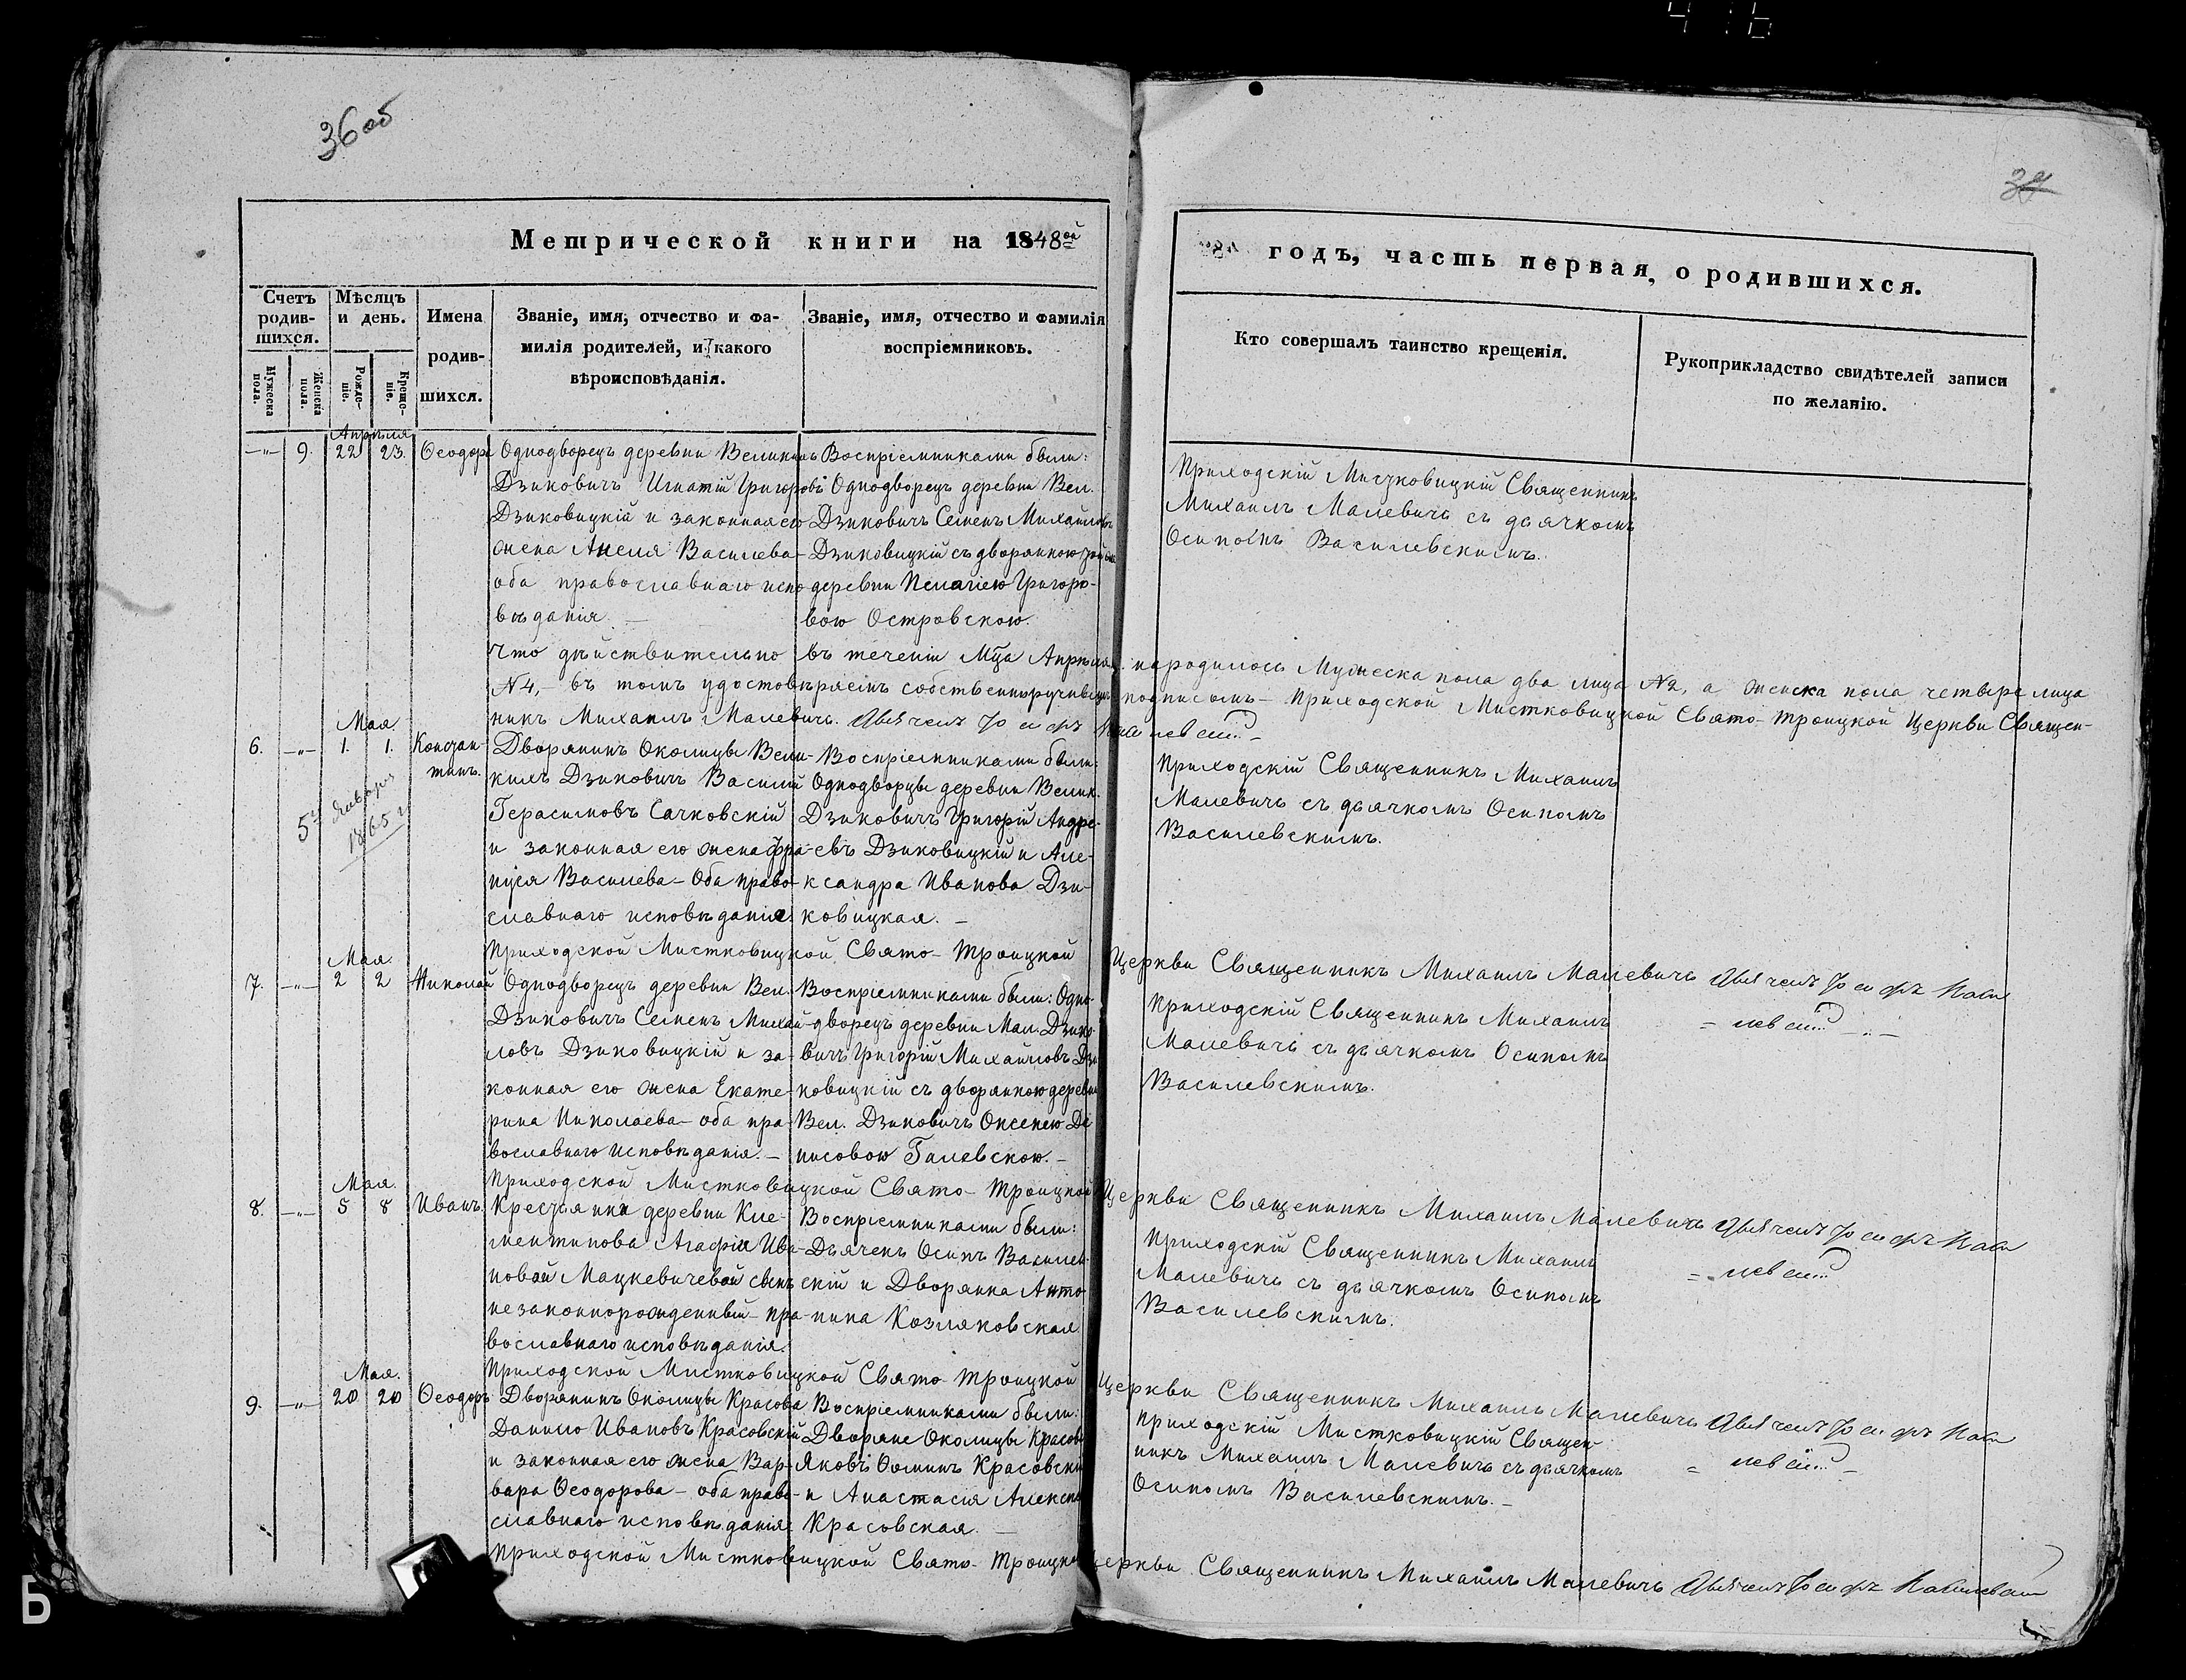 36 об
37
Метрической книги на 1848ой
годъ, часть первая, о родившихся.
Счетъ родив-шихся.
Мужеска пола.
Женска пола.
Мѣсяцъ и день.
Рожде-ніе.
Креще-ніе.
Имена родив-шихся.
Званіе, имя, отчество и фа-
милія родителей, и какого
вѣроисповѣданія.
Званіе, имя, отчество и фамилія
воспріемниковъ.
Кто совершалъ таинство крещенія.
Рукоприкладство свидѣтелей записи
по желанію.
Апрѣля
—"— 9. 22 23. Ѳеодора
Однодворецъ деревни Великихъ
Дзиковичъ Игнатій Григоровъ
Дзиковицкій и законная его
жена Анеля Василева—
оба православнаго испо
вѣданія. —
Воспріемниками были:
Однодворецъ деревни Вел.
Дзиковичъ Семенъ Михайловъ
Дзиковицкій съ дворянкою
деревни Пелагіею Григоро-
вою Островскою.
Приходскій Мистковицкій Священникъ
Михаилъ Малевичъ съ дьячкомъ
Осипомъ Василевскимъ.
Что дѣйствительно въ теченіи Мца Апрѣля народилось Мужеска пола два лица №2, а женска пола четыре лица
№4,— въ томъ удостовѣряемъ собственноручнымъ подписомъ— Приходской Мистковицкой Свято-Троицкой Церкви Священ-
никъ Михаилъ Малевичъ. Дьячекъ
Мая.
6. —"— 1. 1. Констан-
тинъ.
5го Января
1865 г
Дворянинъ Околицы Вели-
кихъ Дзиковичъ Василій
Герасимовъ Сачковскій
и законная его жена Фра-
нцся Василева— Оба право-
славнаго исповѣданія.
Воспріемниками были:
Однодворцы деревни Велик.
Дзиковичъ Григорій Андре-
евъ Дзиковицкій и Але-
ксандра Иванова Дзи-
ковицкая. —
Приходскій Священникъ Михаилъ
Малевичъ съ дьячкомъ Осипомъ
Василевскимъ.
Приходской Мистковицкой Свято-Троицкой Церкви Священникъ Михаилъ Малевичъ Дьячекъ
Мая
7. —"— 2 2 Николай
Однодворецъ деревни Вел.
Дзиковичъ Семенъ Михай-
ловъ Дзиковицкій и за-
конная его жена Екате-
рина Николаева— оба пра-
вославнаго исповѣданія. —
Воспріемниками были: Одно-
дворецъ деревни Мал. Дзико-
вичъ Григорій Михайловъ Дзи
ковицкій съ дворянкою деревни
Вел. Дзиковичъ Оксенею Де
нисовою Галевскою. —
Приходскій Священникъ Михаилъ
Малевичъ съ дьячкомъ Осипомъ
Василевскимъ.
Приходской Мистковицкой Свято-Троицкой Церкви Священникъ Михаилъ Малевичъ Дьячекъ
Мая.
8. —"— 5 8 Иванъ.
Крестьянки деревни Кле-
ментинова Агафіи Ива-
новой Мацкевичевой сынъ
незаконнорожденный— пра-
вославнаго исповѣданія.
Воспріемниками были:
Дьячекъ Осипъ Василев-
скій и Дворянка Анто
нина Козляковская
Приходскій Священникъ Михаилъ
Малевичъ съ дьячкомъ Осипомъ
Василевскимъ.
Приходской Мистковицкой Свято Троицкой Церкви Священникъ Михаилъ Малевичъ Дьячекъ
Мая.
9. —"— 20 20 Ѳеодоръ
Дворянинъ Околицы Красова
Данило Ивановъ Красовскій
и законная его жена Вар-
вара Ѳеодорова— оба право-
славнаго исповѣданія
Воспріемниками были:
Дворяне Околицы Красов
Яковъ Ѳоминъ Красовскій
и Анастасія Алекс
Красовская. —
Приходскій Мистковицкій Священ-
никъ Михаилъ Малевичъ съ дьячкомъ
Осипомъ Василевскимъ. —
Приходской Мистковицкой Свято-Троицкой Церкви Священникъ Михаилъ Малевичъ Дьячекъ
Б